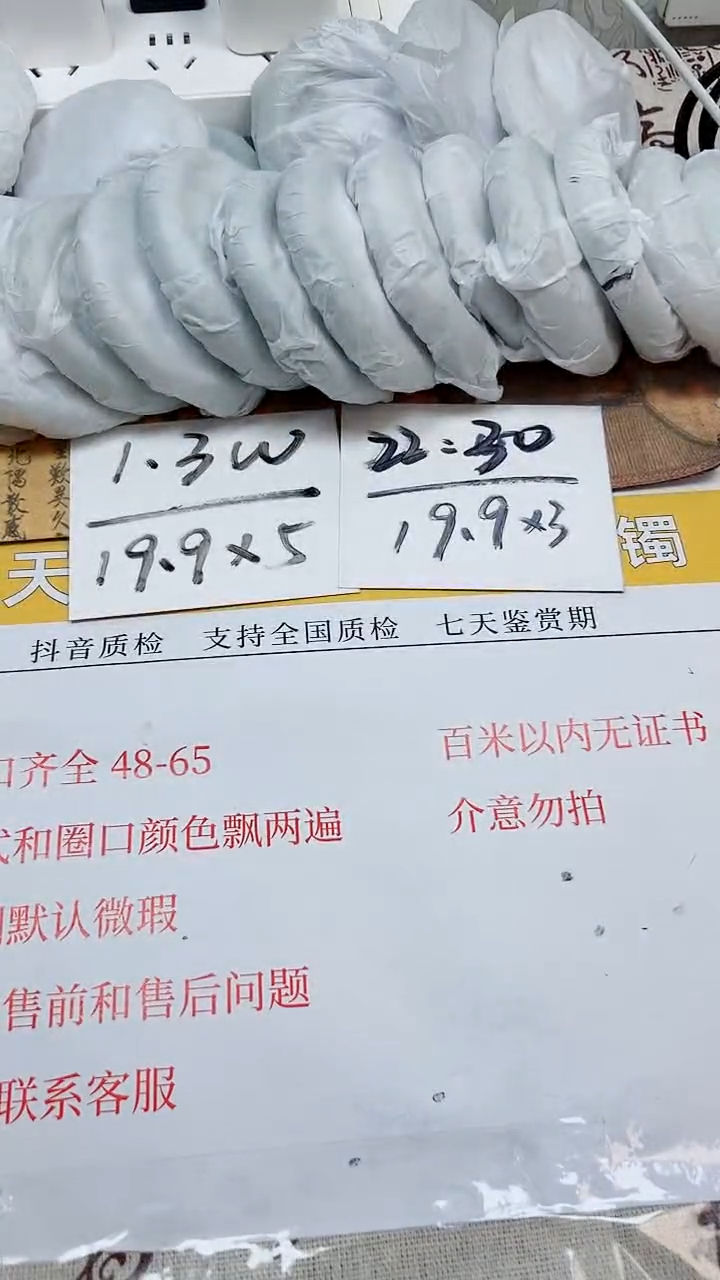 1.3W
19.9×5
22:30
19.9×3
天
镯
抖音质检 支持全国质检 七天鉴赏期
口齐全 48-65
和圈口颜色飘两遍
默认微瑕
售前和售后问题
联系客服
百米以内无证书
介意勿拍